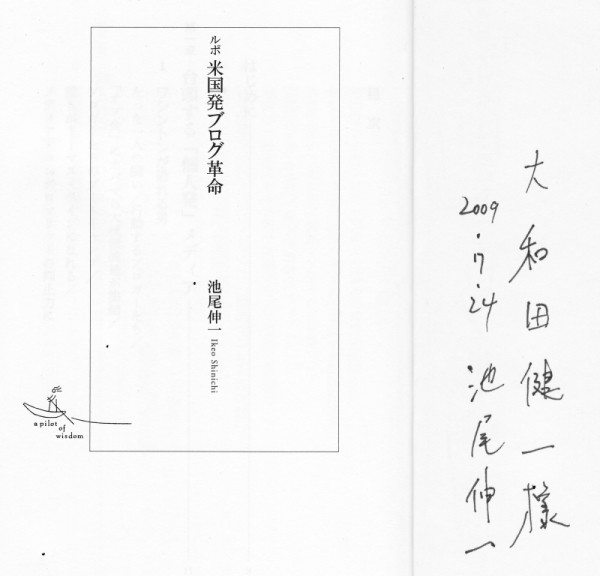 ルポ 米国発ブログ革命
池尾伸一 Ikeo Shinichi
a pilot
of
wisdom
大和田健一様
2009.7.24
池尾伸一